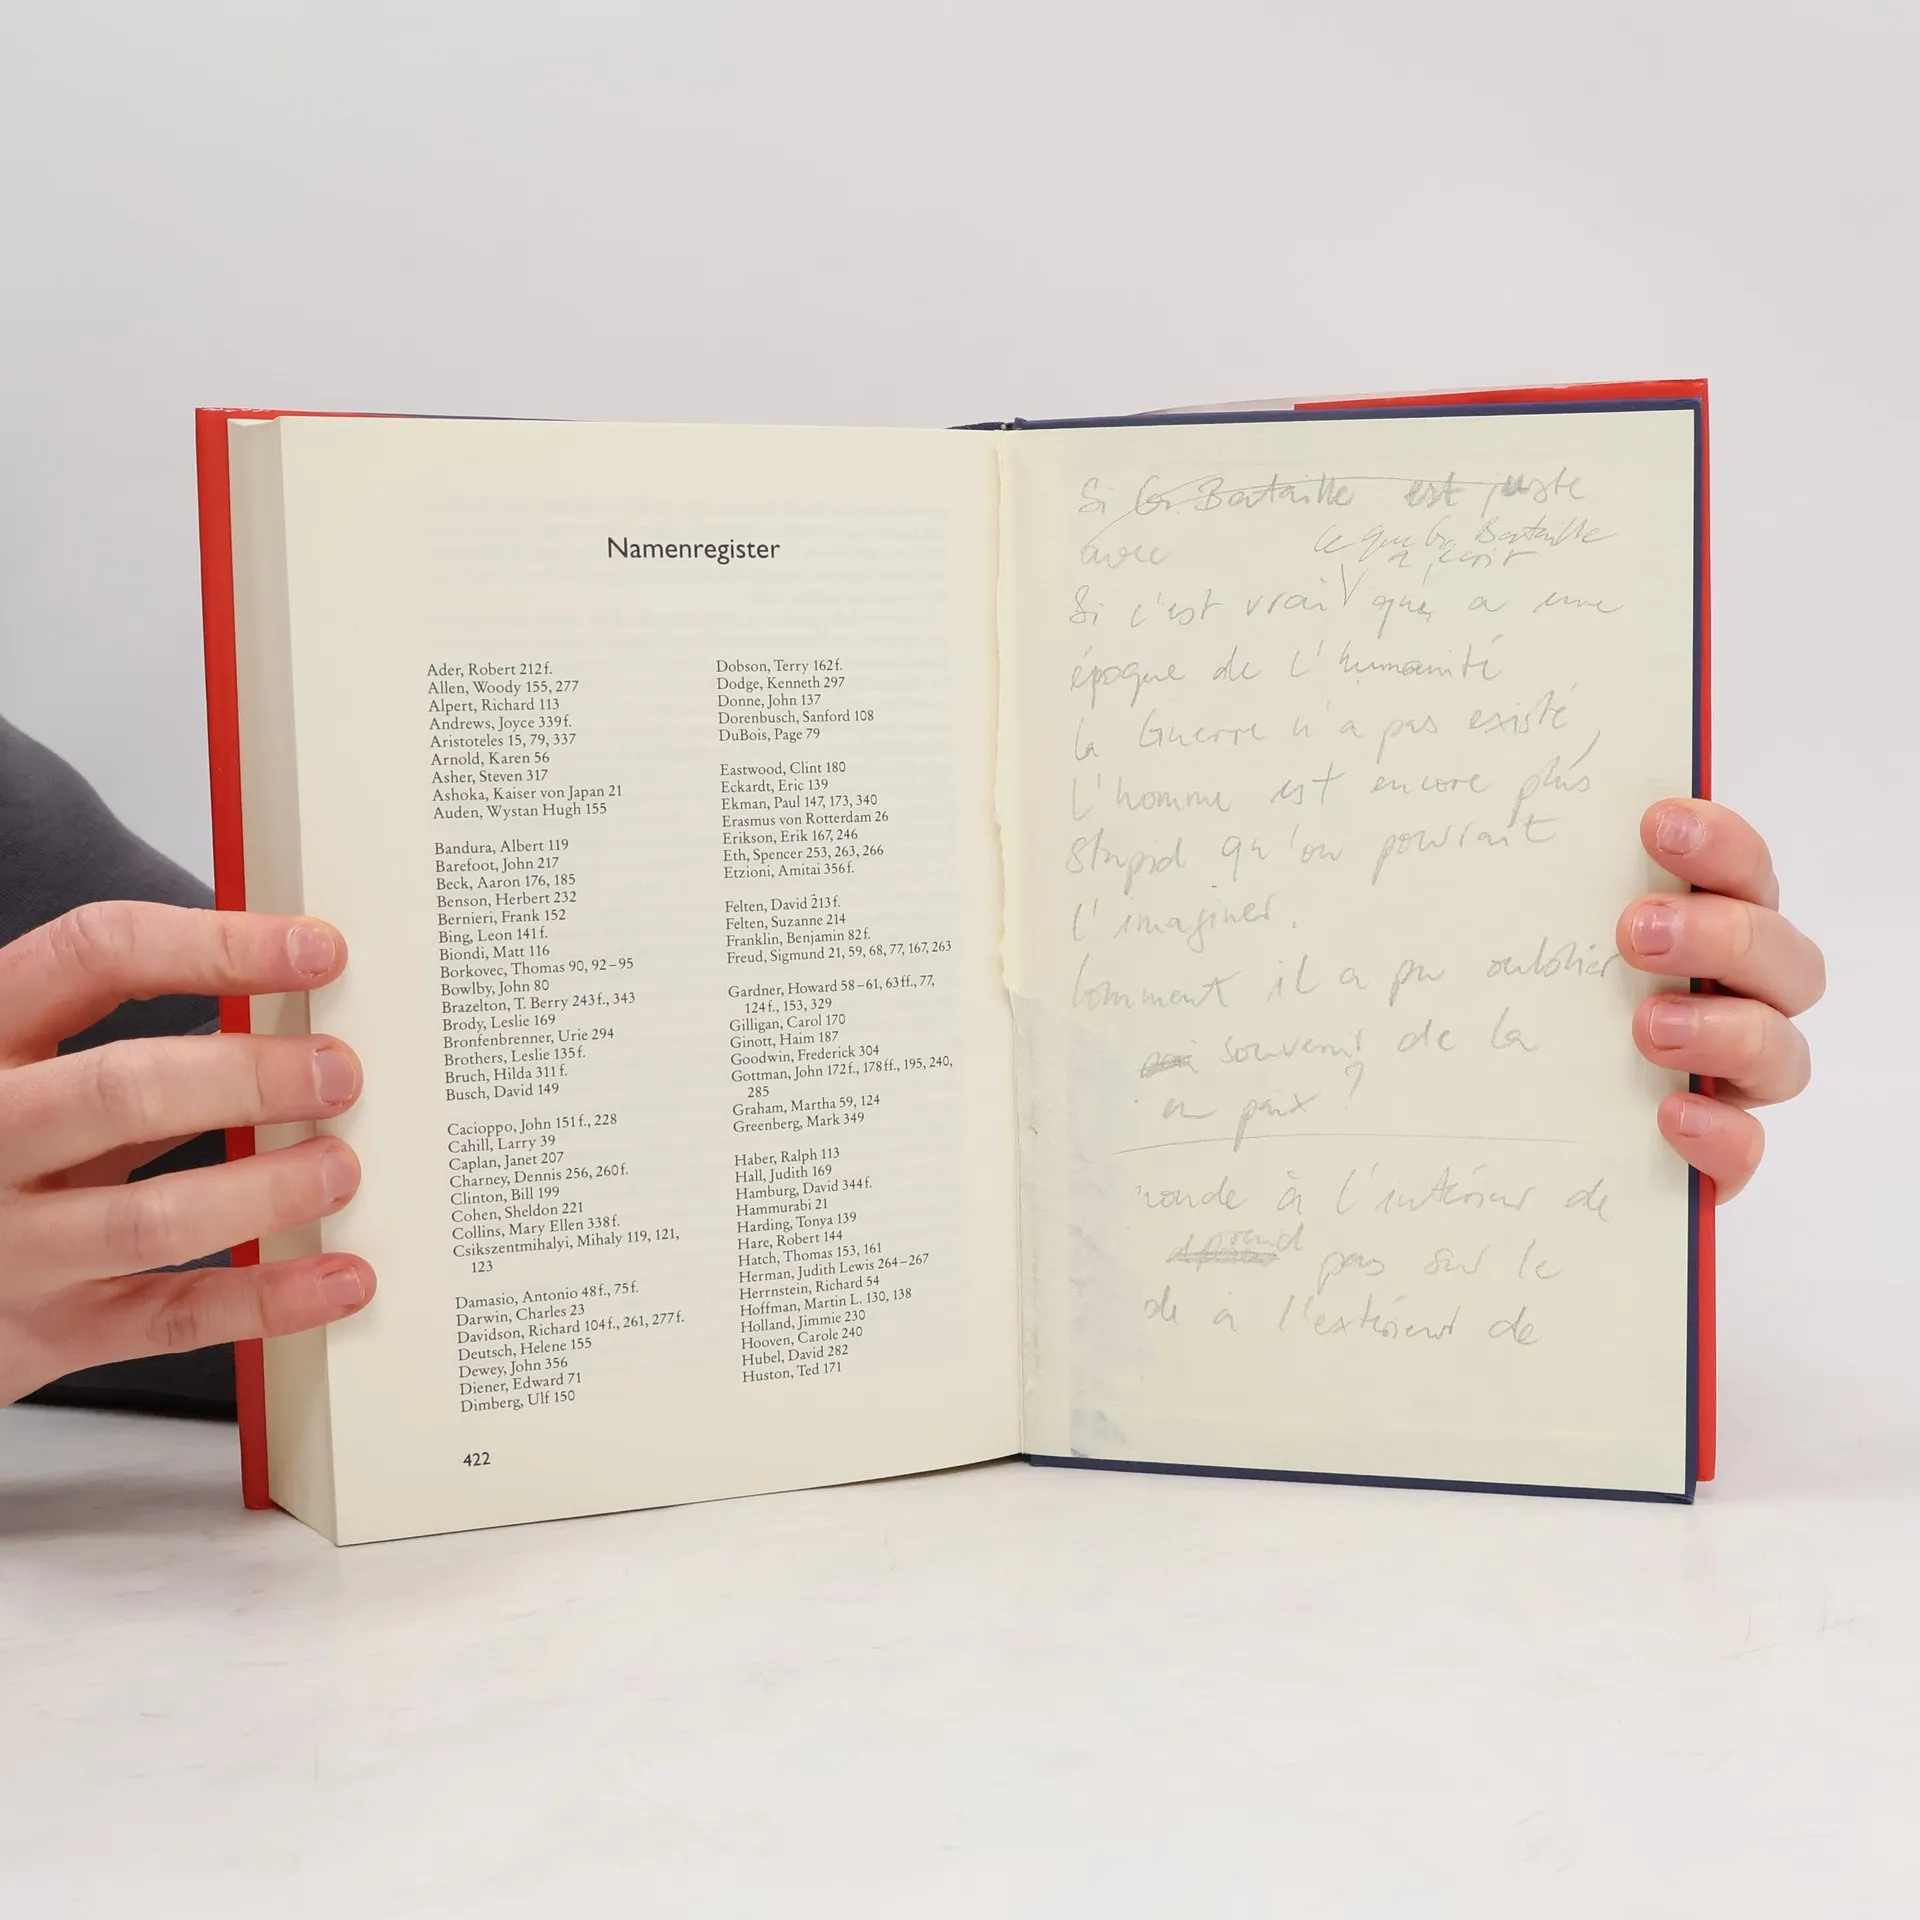 Namenregister
Ader, Robert 212f.
Allen, Woody 155, 277
Alpert, Richard 113
Andrews, Joyce 339f.
Aristoteles 15, 79, 337
Arnold, Karen 56
Asher, Steven 317
Ashoka, Kaiser von Japan 21
Auden, Wystan Hugh 155
Bandura, Albert 119
Barefoot, John 217
Beck, Aaron 176, 185
Benson, Herbert 232
Bernieri, Frank 152
Bing, Leon 141f.
Biondi, Matt 116
Borkovec, Thomas 90, 92–95
Bowlby, John 80
Brazelton, T. Berry 243f., 343
Brody, Leslie 169
Bronfenbrenner, Urie 294
Brothers, Leslie 135f.
Bruch, Hilda 311f.
Busch, David 149
Cacioppo, John 151f., 228
Cahill, Larry 39
Caplan, Janet 207
Charney, Dennis 256, 260f.
Clinton, Bill 199
Cohen, Sheldon 221
Collins, Mary Ellen 338f.
Csikszentmihalyi, Mihaly 119, 121,
123
Damasio, Antonio 48f., 75f.
Darwin, Charles 23
Davidson, Richard 104f., 261, 277f.
Deutsch, Helene 155
Dewey, John 356
Diener, Edward 71
Dimberg, Ulf 150
422
Dobson, Terry 162f.
Dodge, Kenneth 297
Donne, John 137
Dorenbusch, Sanford 108
DuBois, Page 79
Eastwood, Clint 180
Eckardt, Eric 139
Ekman, Paul 147, 173, 340
Erasmus von Rotterdam 26
Erikson, Erik 167, 246
Eth, Spencer 253, 263, 266
Etzioni, Amitai 356f.
Felten, David 213f.
Felten, Suzanne 214
Franklin, Benjamin 82f.
Freud, Sigmund 21, 59, 68, 77, 167, 263
Gardner, Howard 58–61, 63ff., 77,
124f., 153, 329
Gilligan, Carol 170
Ginott, Haim 187
Goodwin, Frederick 304
Gottman, John 172f., 178ff., 195, 240,
285
Graham, Martha 59, 124
Greenberg, Mark 349
Haber, Ralph 113
Hall, Judith 169
Hamburg, David 344f.
Hammurabi 21
Harding, Tonya 139
Hare, Robert 144
Hatch, Thomas 153, 161
Herman, Judith Lewis 264–267
Herrnstein, Richard 54
Hoffman, Martin L. 130, 138
Holland, Jimmie 230
Hooven, Carole 240
Hubel, David 282
Huston, Ted 171
Si G. Bataille est juste
avec
ce que G. Bataille
a écrit
Si c'est vrai que a une
époque de l'humanité
la Guerre n'a pas existé,
l'homme est encore plus
stupid qu'on pourrait
l'imaginer.
Comment il a pu oublier
souvenir de la
en paix ?
à l'intérieur de
pas sur le
de à l'extérieur de